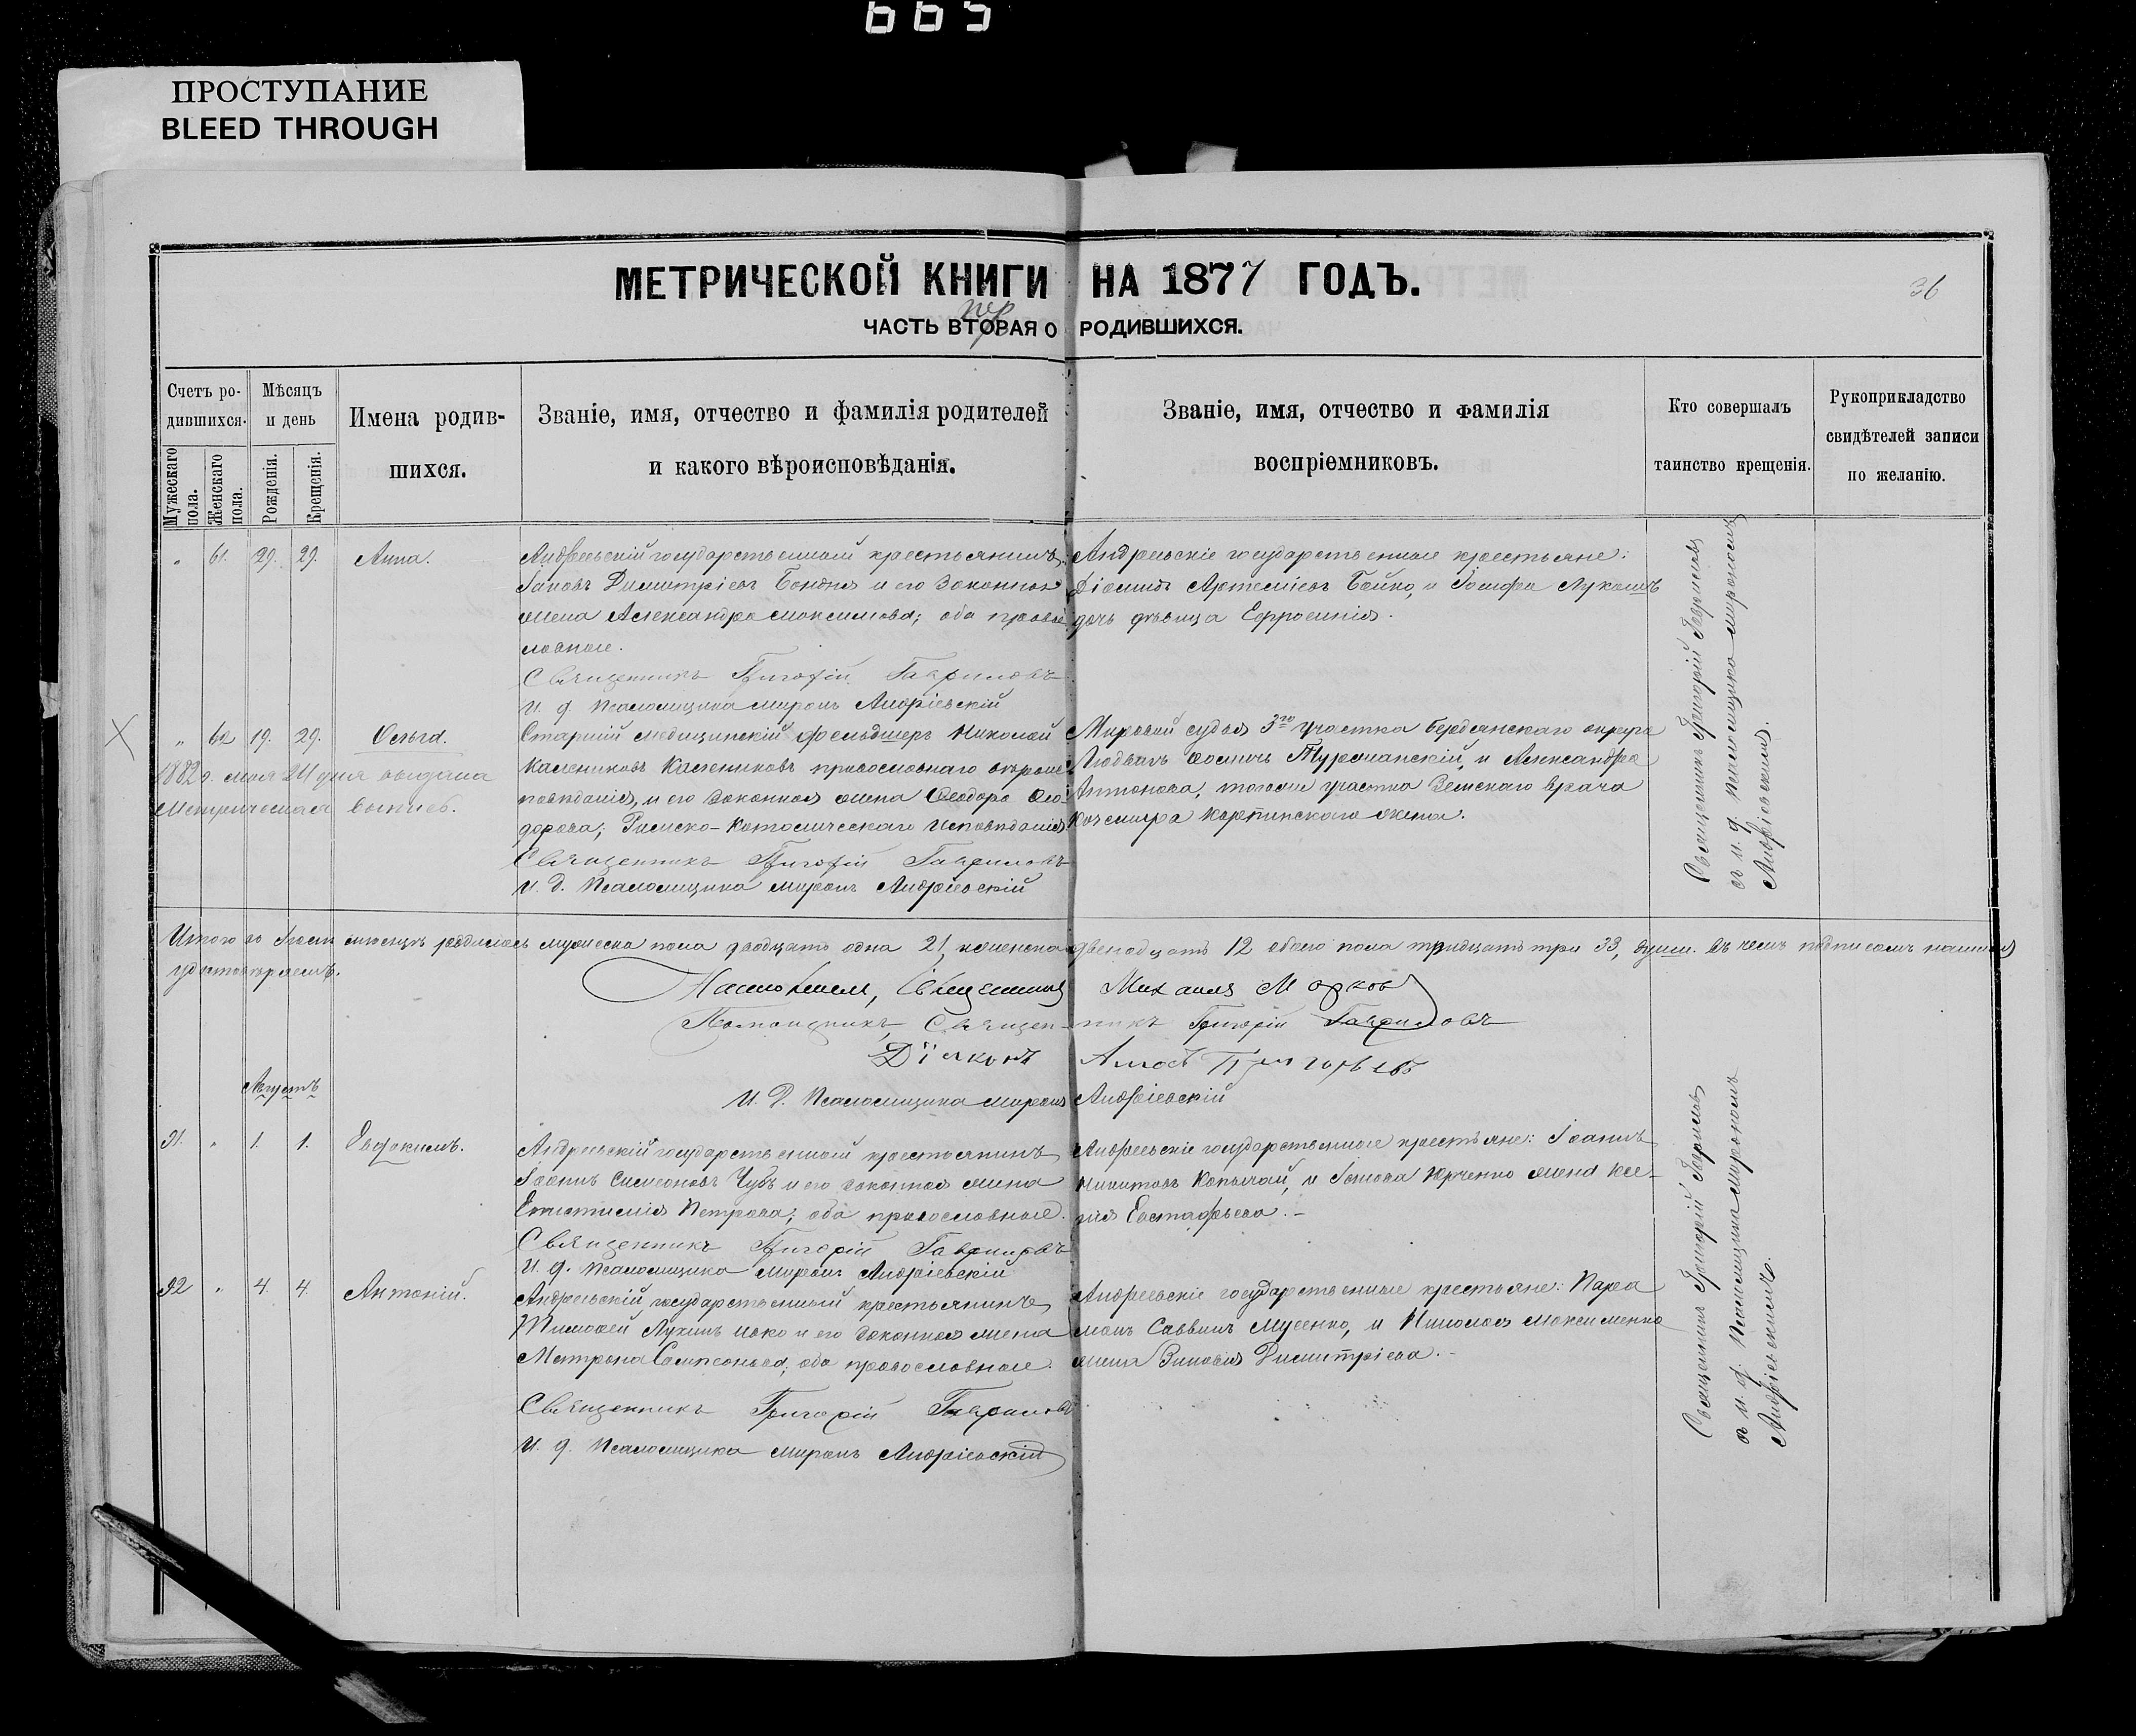 665
ПРОСТУПАНИЕ
BLEED THROUGH
МЕТРИЧЕСКОЙ КНИГИ НА 1877 ГОДЪ.
36
ЧАСТЬ ВТОРАЯ О РОДИВШИХСЯ.
пер
Счетъ родившихся.
Мѣсяцъ и день
Имена родившихся.
Званіе, имя, отчество и фамилія родителей
и какого вѣроисповѣданія.
Званіе, имя, отчество и фамилія
воспріемниковъ.
Кто совершалъ
таинство крещенія.
Рукоприкладство
свидѣтелей записи
по желанію.
Мужескаго пола.
Женскаго пола.
Рожденія.
Крещенія.
„ 61. 29. 29. Анна.
Андреевскій государственный крестьянинъ
Іаковъ Димитріевъ Бондня и его законная
жена Александра Максимова; оба православные.
Священникъ Григорій Гавриловъ
И. д. Псаломщика Миронъ Андріевскій
Андреевскіе государственные крестьяне:
Діомидъ Артеміевъ Бойко, и Іосифа Лукашъ
дочь дѣвица Ефросинія.
„ 62 19. 29. Ольга.
1882 г. мая 24 дня выдана
Метрическая выпись.
Старшій медицинскій фельдшеръ Николай
Калениковъ Калениковъ православнаго вѣроисповѣданія, и его законная жена Ѳеодора Ѳеодорова; Римско-Католическаго исповѣданія
Священникъ Григорій Гавриловъ
И. д. Псаломщика Миронъ Андріевскій
Мировой судья 3го участка Бердянскаго округа
Туромчанскій, и Александра
Антонова, тогоже участка Земскаго врача
Каземира Карпинскаго жена.
Священникъ Григорій Гавриловъ
съ и. д. Псаломщика Мирономъ
Андріевскимъ.
Итого въ Іюлѣ мѣсяцѣ родилось мужеска пола двадцать одна 21, женска двенадцать 12 обоего пола тридцать три 33, души. Въ чемъ подписомъ нашимъ
удостовѣряемъ.
Настоятель, Священникъ Михаилъ Марковъ
Помощникъ, Священникъ Григорій Гавриловъ
Діаконъ Амосъ Григорьевъ
И. Д. Псаломщика Миронъ Андріевскій
Августъ
91. „ 1. 1. Евдокимъ.
Андреевскій государственный крестьянинъ
Іоаннъ Симеоновъ Чубъ и его законная жена
Евтимія Петрова; оба православные.
Священникъ Григорій Гавриловъ
И. д. Псаломщика Миронъ Андріевскій
Андреевскіе государственные крестьяне: Іоаннъ
Никитовъ Копычай, и Іакова Юрченко жена
Евстафьева.-
92 „ 4. 4. Антоній.
Андреевскій государственный крестьянинъ
Тимоѳей Лукинъ и его законная жена
Матрона Сампсоньева; оба православные.
Священникъ Григорій Гавриловъ
И. д. Псаломщика Миронъ Андріевскій
Андреевскіе государственные крестьяне: Парамонъ Саввинъ Мусенко, и Николая Максименко
жена Зиновія Димитріева.-
Священникъ Григорій Гавриловъ
съ и. д. Псаломщика Мирономъ
Андріевскимъ.